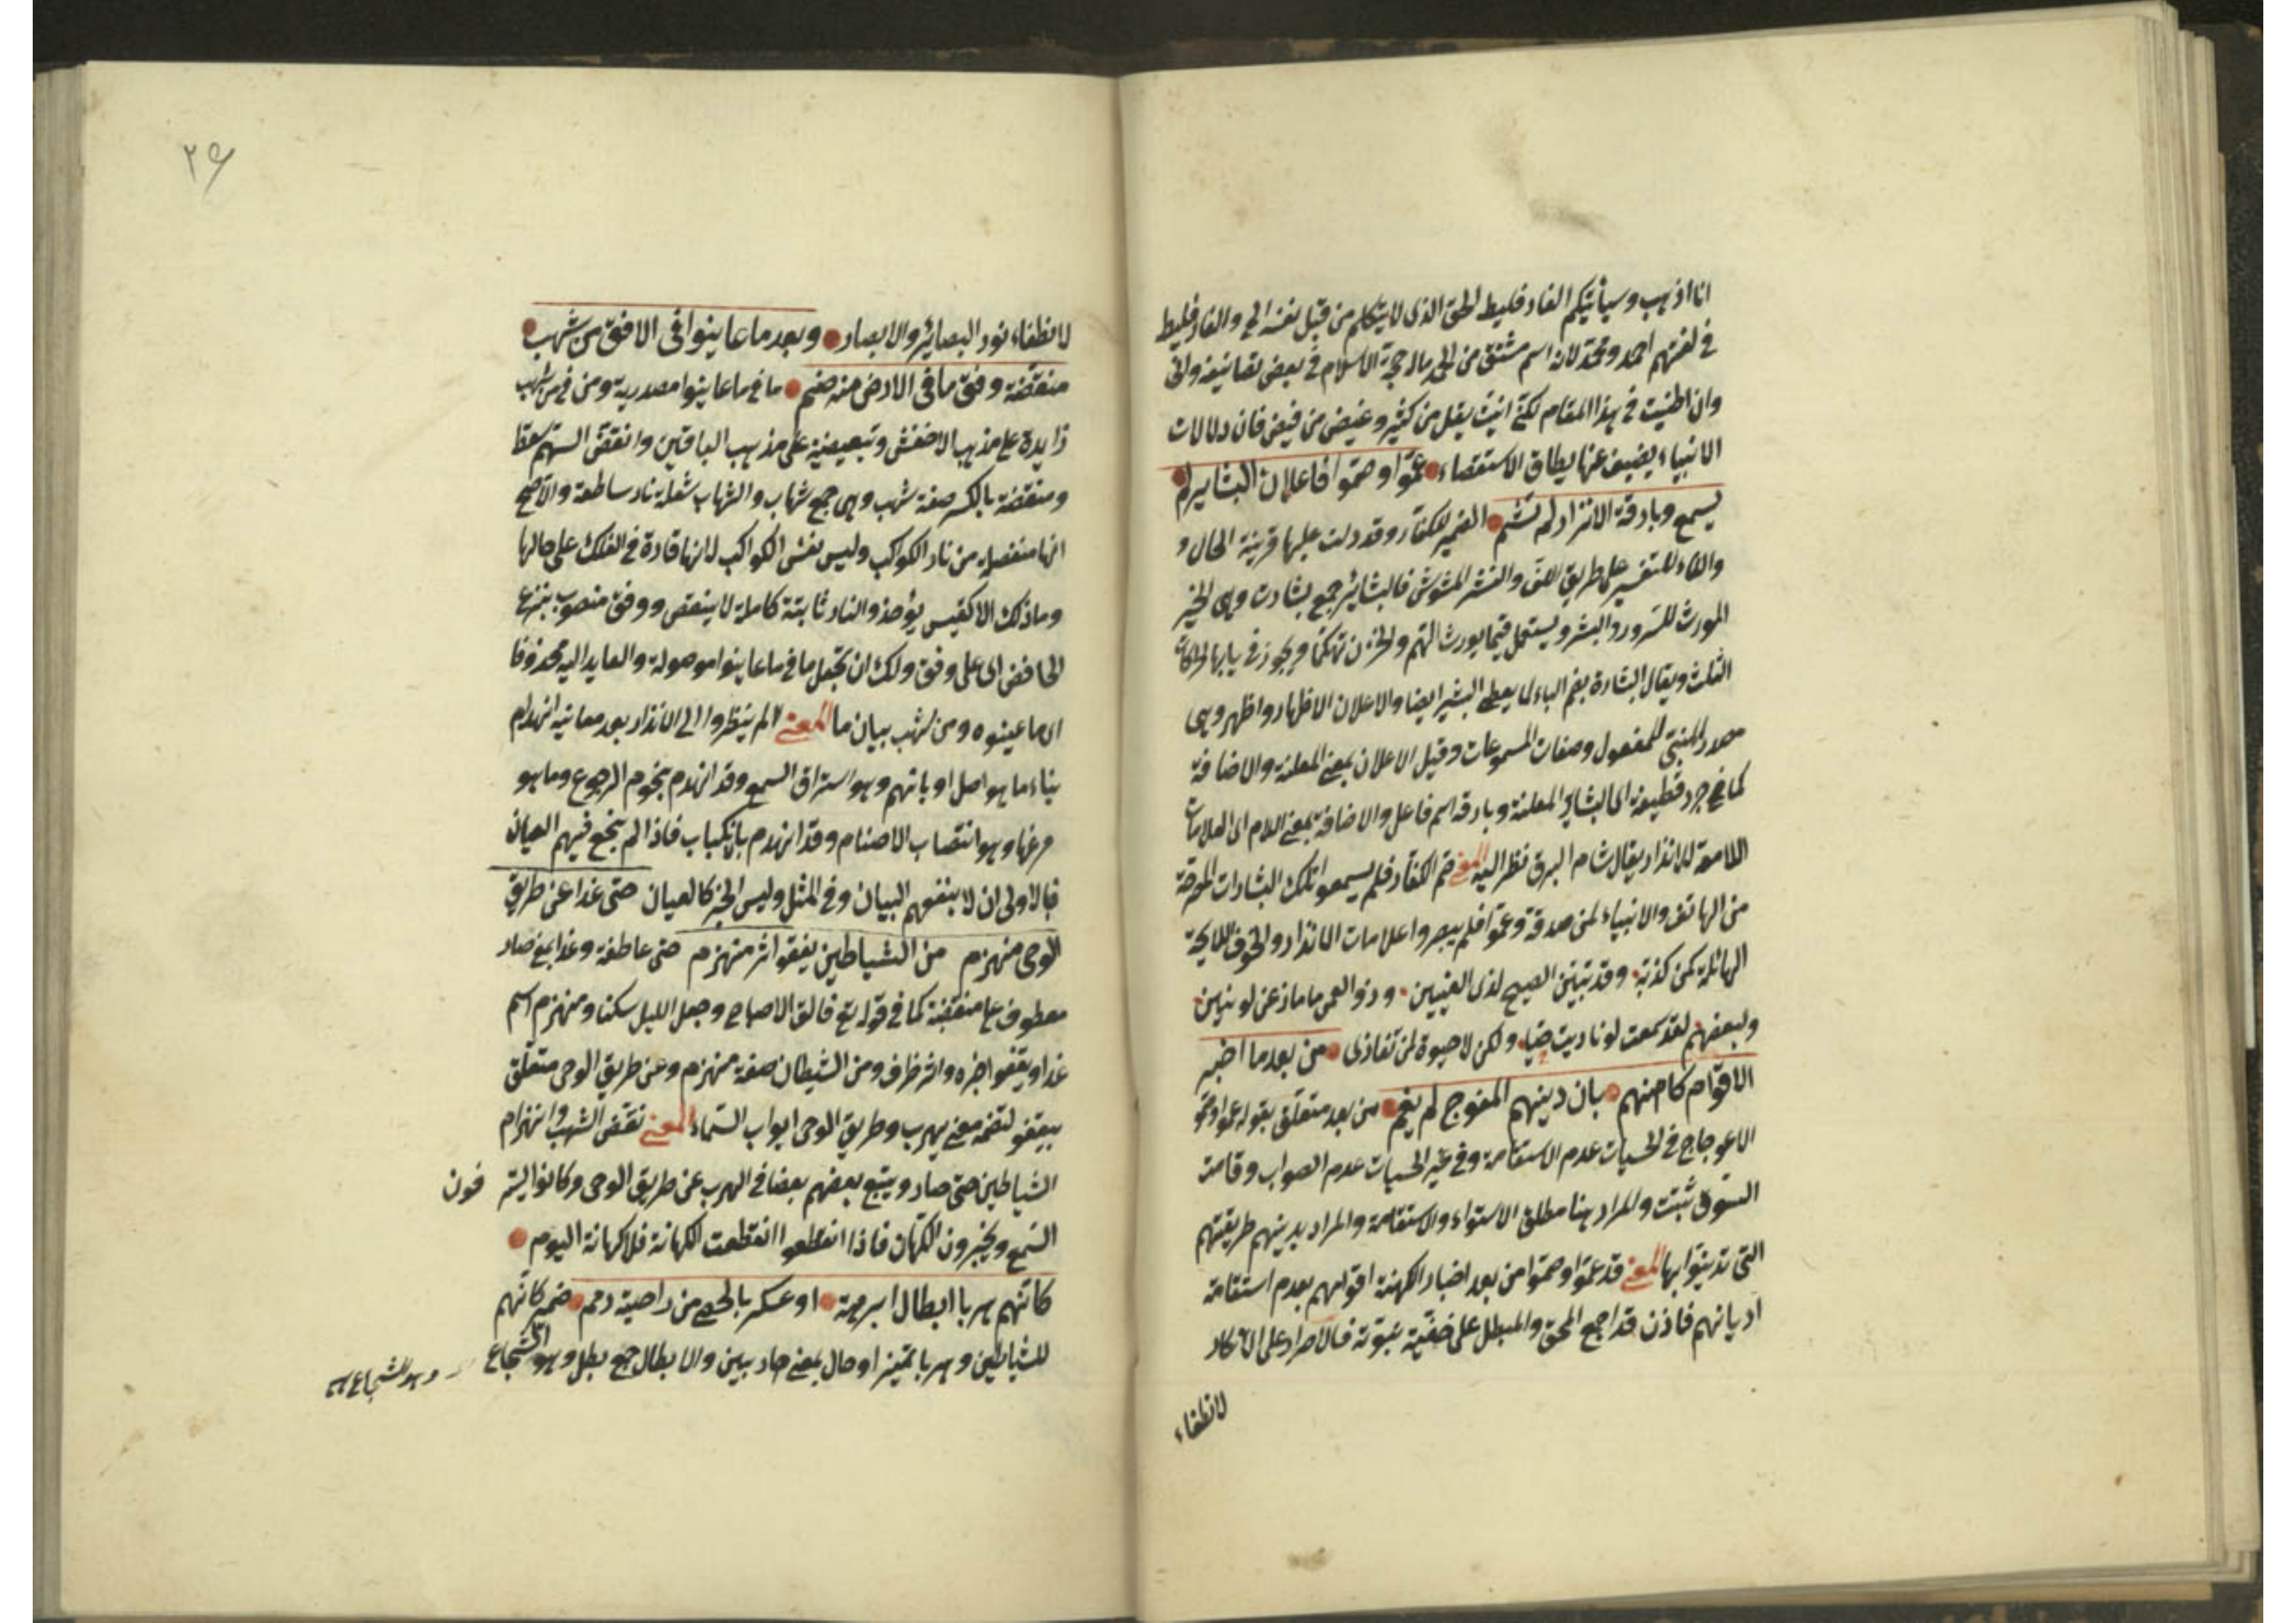 انا اذهب وسيأتيكم الفارقليط الحق الذى لا يتكلم من قبل نفسه الخ والفارقليط
فى لغتهم احمد ومحمد لانه اسم مشتق من الحمد قال حجة الاسلام فى بعض تصانيفه وانى
وان اطنبت فى هذا المقام لكنى اتيت بقل من كثير وغيض من فيض فان دلالات
الانبياء يضيق عنها نطاق الاستقصاء عموا وصموا فاعلان البشاير لم
يسمع وبارقة الانذار لم تشم الضمير للكفار وقد دلت عليها قرينة الحال و
والفاء للتفسير على طريق اللف والنشر المشوش فالبشائر جمع بشارت وهى الخبر
المورث للسرور والبشر ويستعمل فيما يورث الهم والحزن تهكما ويجوز فى بابها الحركات
الثلث ويقال البشارة بضم الباء لما يعطى البشير ايضا والاعلان الاظهار واظهر وهى
مصدر المبنى للمفعول وصفات المسموعات وقيل الاعلان بمعنى المعلنة والاضافة
كما فى جرد قطيفة اى البشاير المعلنة وبارقة اسم فاعل والاضافة بمعنى اللام اى العلامات
اللامعة للانذار يقال شام البرق نظر اليه المعنى صم الكفار فلم يسمعوا تلك البشارات
من الهاتف والانبياء لمن صدقه وعموا فلم يبصروا علامات الانذار والخوف اللايحة
الهائلة لمن كذبه وقد تبين الصبح لذى العينين وذو العمى
ولبعضهم لقد سمعت لو ناديت حيا ولكن لا حيوة لمن تنادى من بعد ما اخبر
الاقوام كاهنهم بان دينهم المعوج لم يقم من بعد متعلق بقوله عموا وصموا
الاعوجاج فى الحسيات عدم الاستقامة وفى غير الحسيات عدم الصواب وقامت
السوق ثبتت والمراد هنا مطلق الاستواء والاستقامة والمراد بدينهم طريقتهم
التى تدينوا بها المعنى قد عموا وصموا من بعد اخبار الكهنة اقوامهم بعدم استقامة
اديانهم فاذن قد اجمع المحق والمبطل على حقية نبوته فالاصرار على الانكار
لانطفاء
٢٦
لانطفاء نور البصائر والابصار وبعد ما عاينوا فى الافق من شهب
منقضة وفق ما فى الارض من صنم ما فى ما عاينوا مصدرية ومن فى من شهب
زايدة على مذهب الاخفش وتبعيضية على مذهب الباقين وانقض السهم سقط
ومنقضة بالكسر صفة شهب وهى جمع شهاب والشهاب شعلة نار ساطعة والاصح
انها منفصلة من نار الكواكب وليس نفس الكواكب لانها قارة فى الفلك على حالها
وما ذلك الا كقبس يؤخذ والنار ثابتة كاملة لا ينقص ووفق منصوب بنزع
الخافض اى على وفق ولك ان تجعل ما فى ما عاينوا موصولة والعايد اليه محذوفا
اى ما عينوه ومن شهب بيان ما المعنى الم ينظروا الى الانذار بعد معاينة انهدام
بناء ما هو اصل اديانهم وهو استراق السمع وقد انهدم بنجوم الرجوع وما هو
فرعها وهو انتصاب الاصنام وقد انهدم بالانكباب فاذا لم ينجع فيهم العيان
فبالاولى ان لا ينفعهم البيان وفى المثل وليس الخبر كالعيان حتى غدا عن طريق
الوحى منهزم من الشياطين يقفو اثر منهزم حتى عاطفة وغدا بمعنى صار
معطوف على منقضة كما فى قوله تع فالق الاصباح وجعل الليل سكنا ومنهزم اسم
غدا ويقفو اخبره واثر ظرف ومن الشيطان صفة منهزم وعن طريق الوحى متعلق
بيقفو لتضمنه معنى يهرب وطريق الوحى ابواب السماء المعنى تنقض الشهب وانهزام
الشياطين حتى صار ويتبع بعضهم بعضا فى الهرب عن طريق الوحى وكانوا يسترقون
السمع ويخبرون الكهان فاذا انقطعوا انقطعت الكهانة فلا كهانة اليوم
كانهم هربا ابطال ابرهة او عسكر بالحصى من راحتيه رمى ضمير كانهم
للشياطين وهربا تمييز او حال بمعنى هاربين والابطال جمع بطل وهو الشجاع
وهو الشجاع